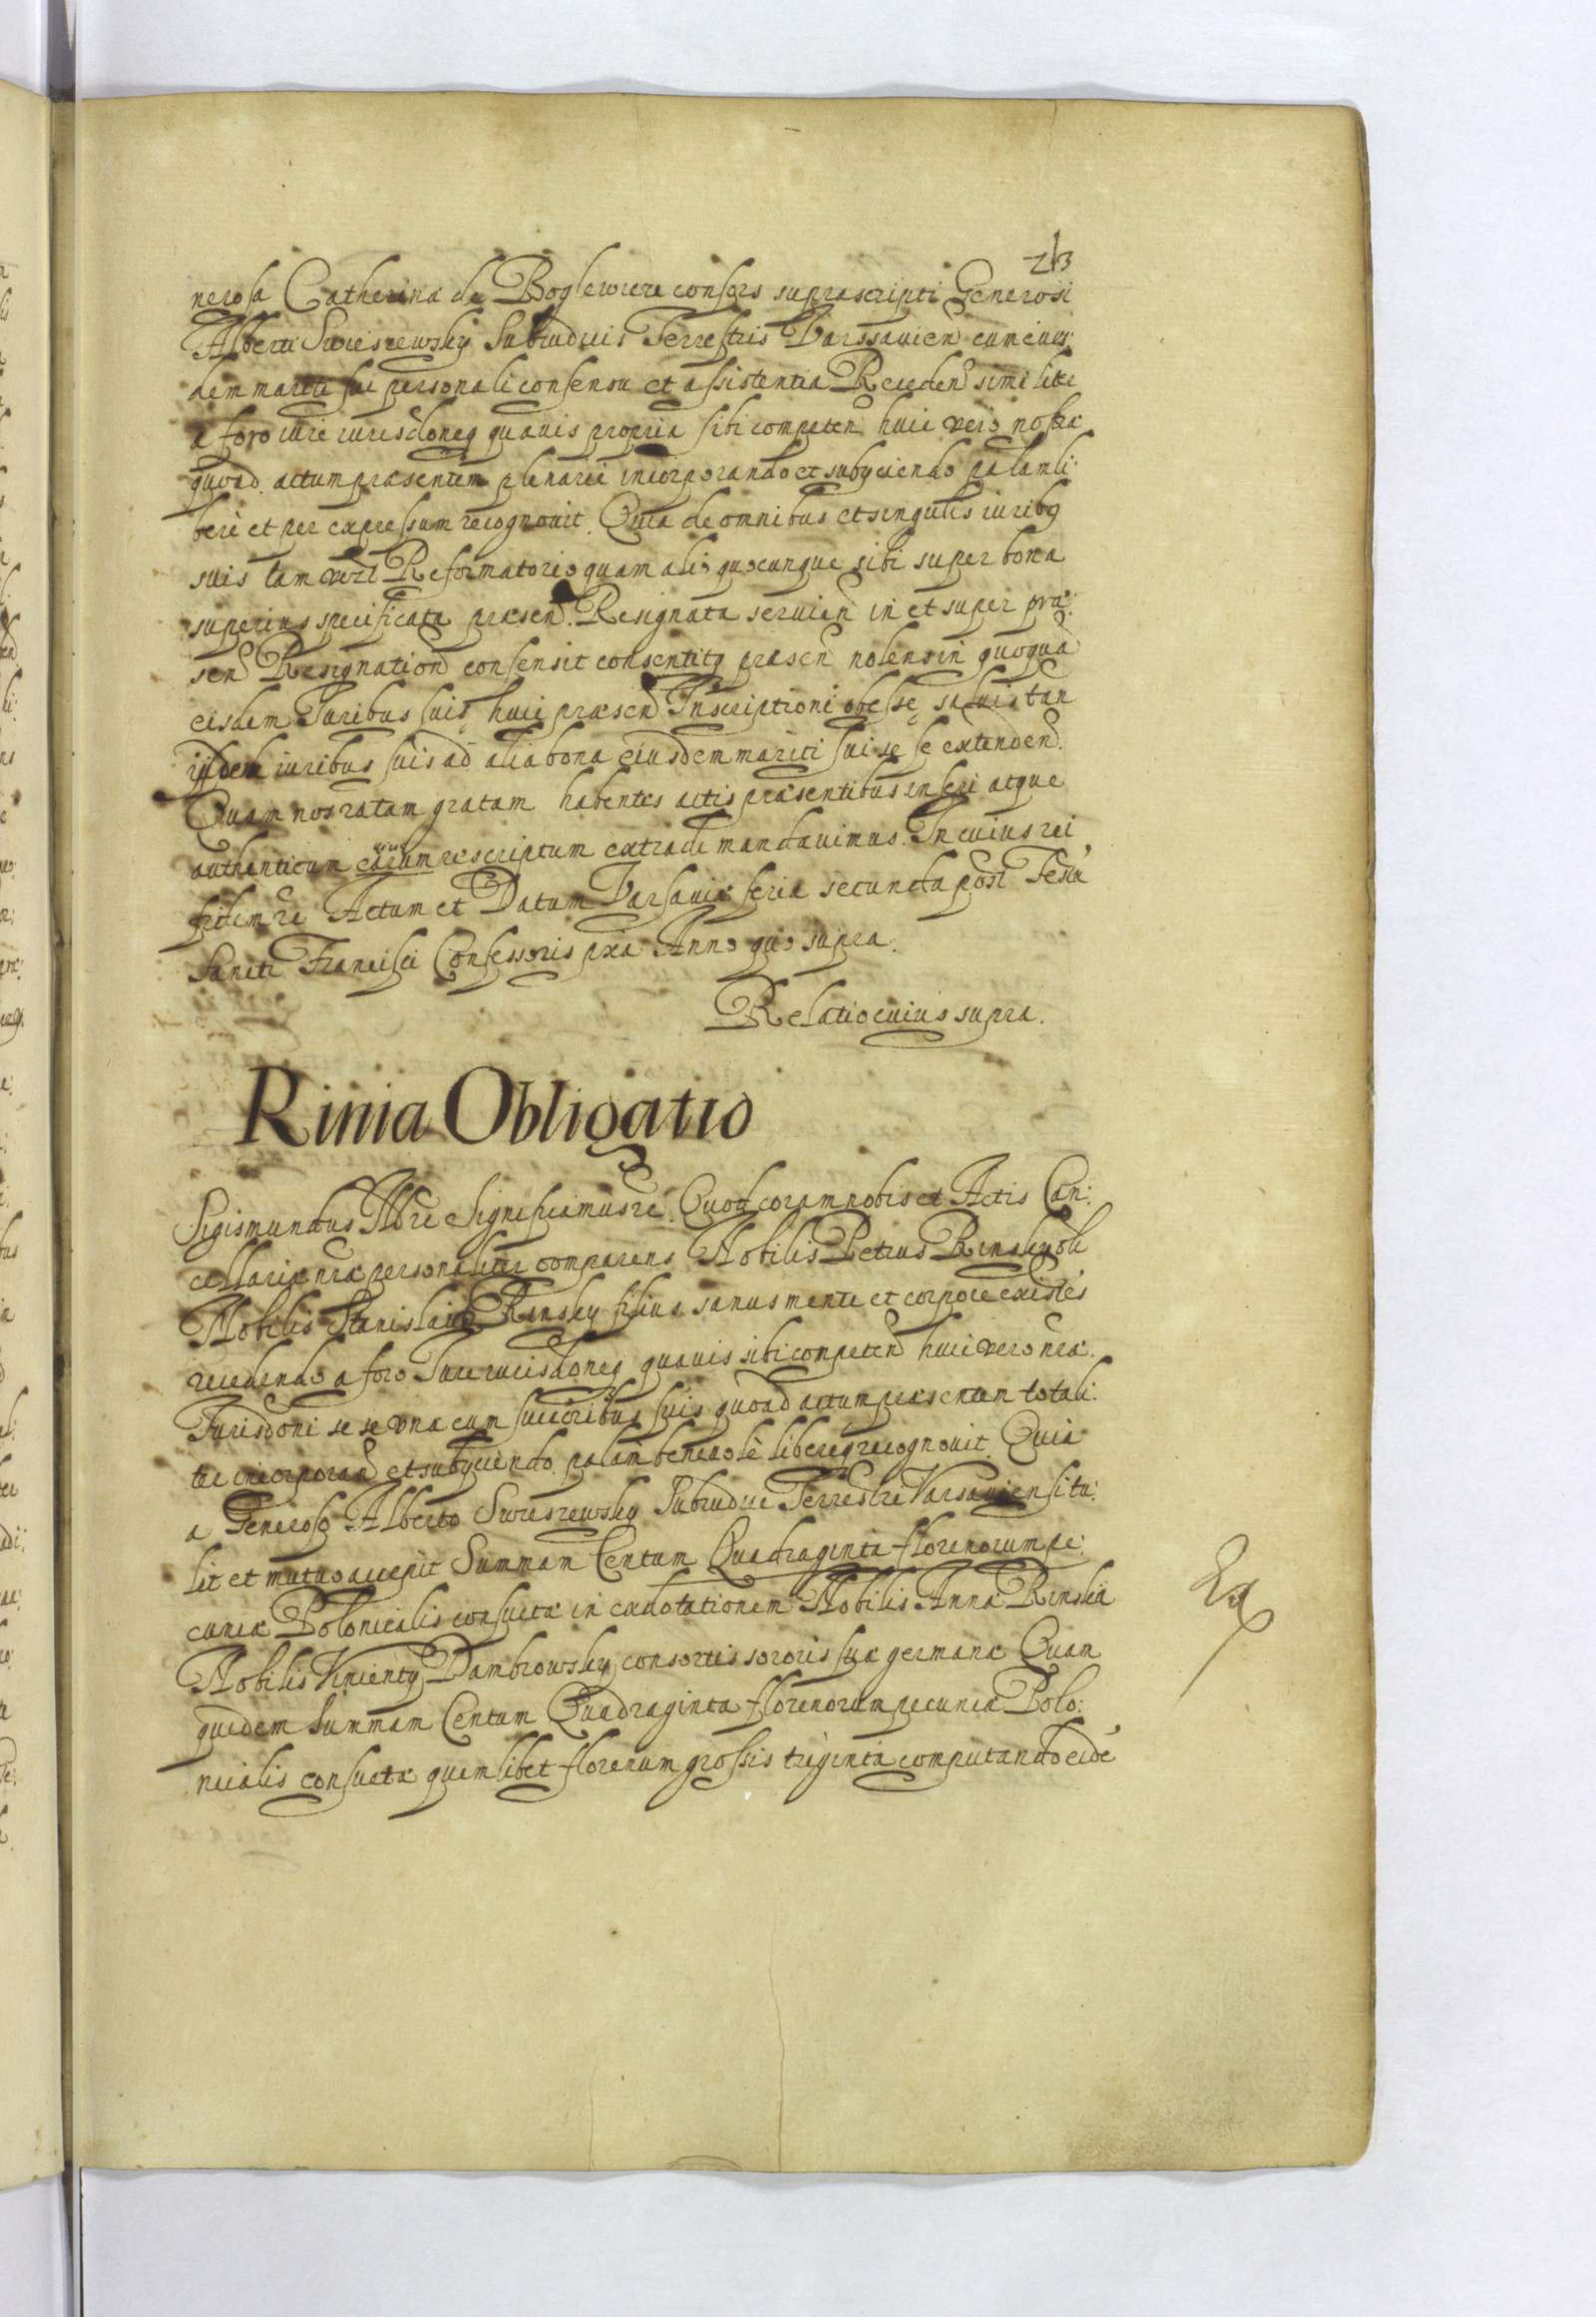 213
nerosa Catherina de Boglewicze consors suprascripti Generosi
Alberti Swieszewsky Subiudicis Terrestris Varssavien cum eius:
dem mariti sui personali consensu et assistentia Receden simi liter
a foro iure iurisdoneq quavis propria sibi competen huic vero nostræ
quoad actum præsentem plenarie incorporando et subyciendo palam li:
bere et per expressum recognovit. Quia de omnibus et singulis iuribq
suis tam Reformatorio quam alio quocunque sibi super bona
superius specificata præsen. Resignata servien in et super præ:
sen Resignation consensit consentitq præsen nolens in quoquā
eisdem Iuribus suis huic præsen Inscriptioni obesse salvis tan
ijsdem iuribus suis ad alia bona eiusdem mariti sui se se extenden.
Quam nos ratam gratam habentes actis præsentibus inseri atque
authenticum earum rescriptum extradi mandavimus. In cuius rei
fidem re Actum et Datum Varsaviæ feria secunda post Festū
Sancti Francisci Confessoris pxia Anno quo supra.
Relatio cuius supra.
Rinia Obligatio
Sigismundus III Dre Significamus re. Quod coram nobis et Actis Can:
cellariæ nræ personaliter comparens Nobilis Petrus Rinsky oli
Nobilis Stanislai Rinsky filius sanus mente et corpore existēs
recedendo a foro Iure iurisdoneq quavis sibi competen huic vero nræ.
Iurisdoni se se una cum succribus suis quoad actum præsentem totali:
ter incorporan et subyciendo palam benevole libereq recognovit Quia
a Generoso Alberto Swieszewsky Subiudice Terrestre Varsaviensi tu:
lit et mutuo accepit Summam Centum Quadraginta florenorum pe:
cuniæ Polonicalis consuetæ in exdotationem Nobilis Annæ Rinska
Nobilis Vincenty Dambrowsky consortis sororis suæ germanæ Quam
quidem summam Centum Quadraginta florenorum pecuniæ Polo:
nicalis consuetæ quemlibet florenum grossis triginta computando eidē